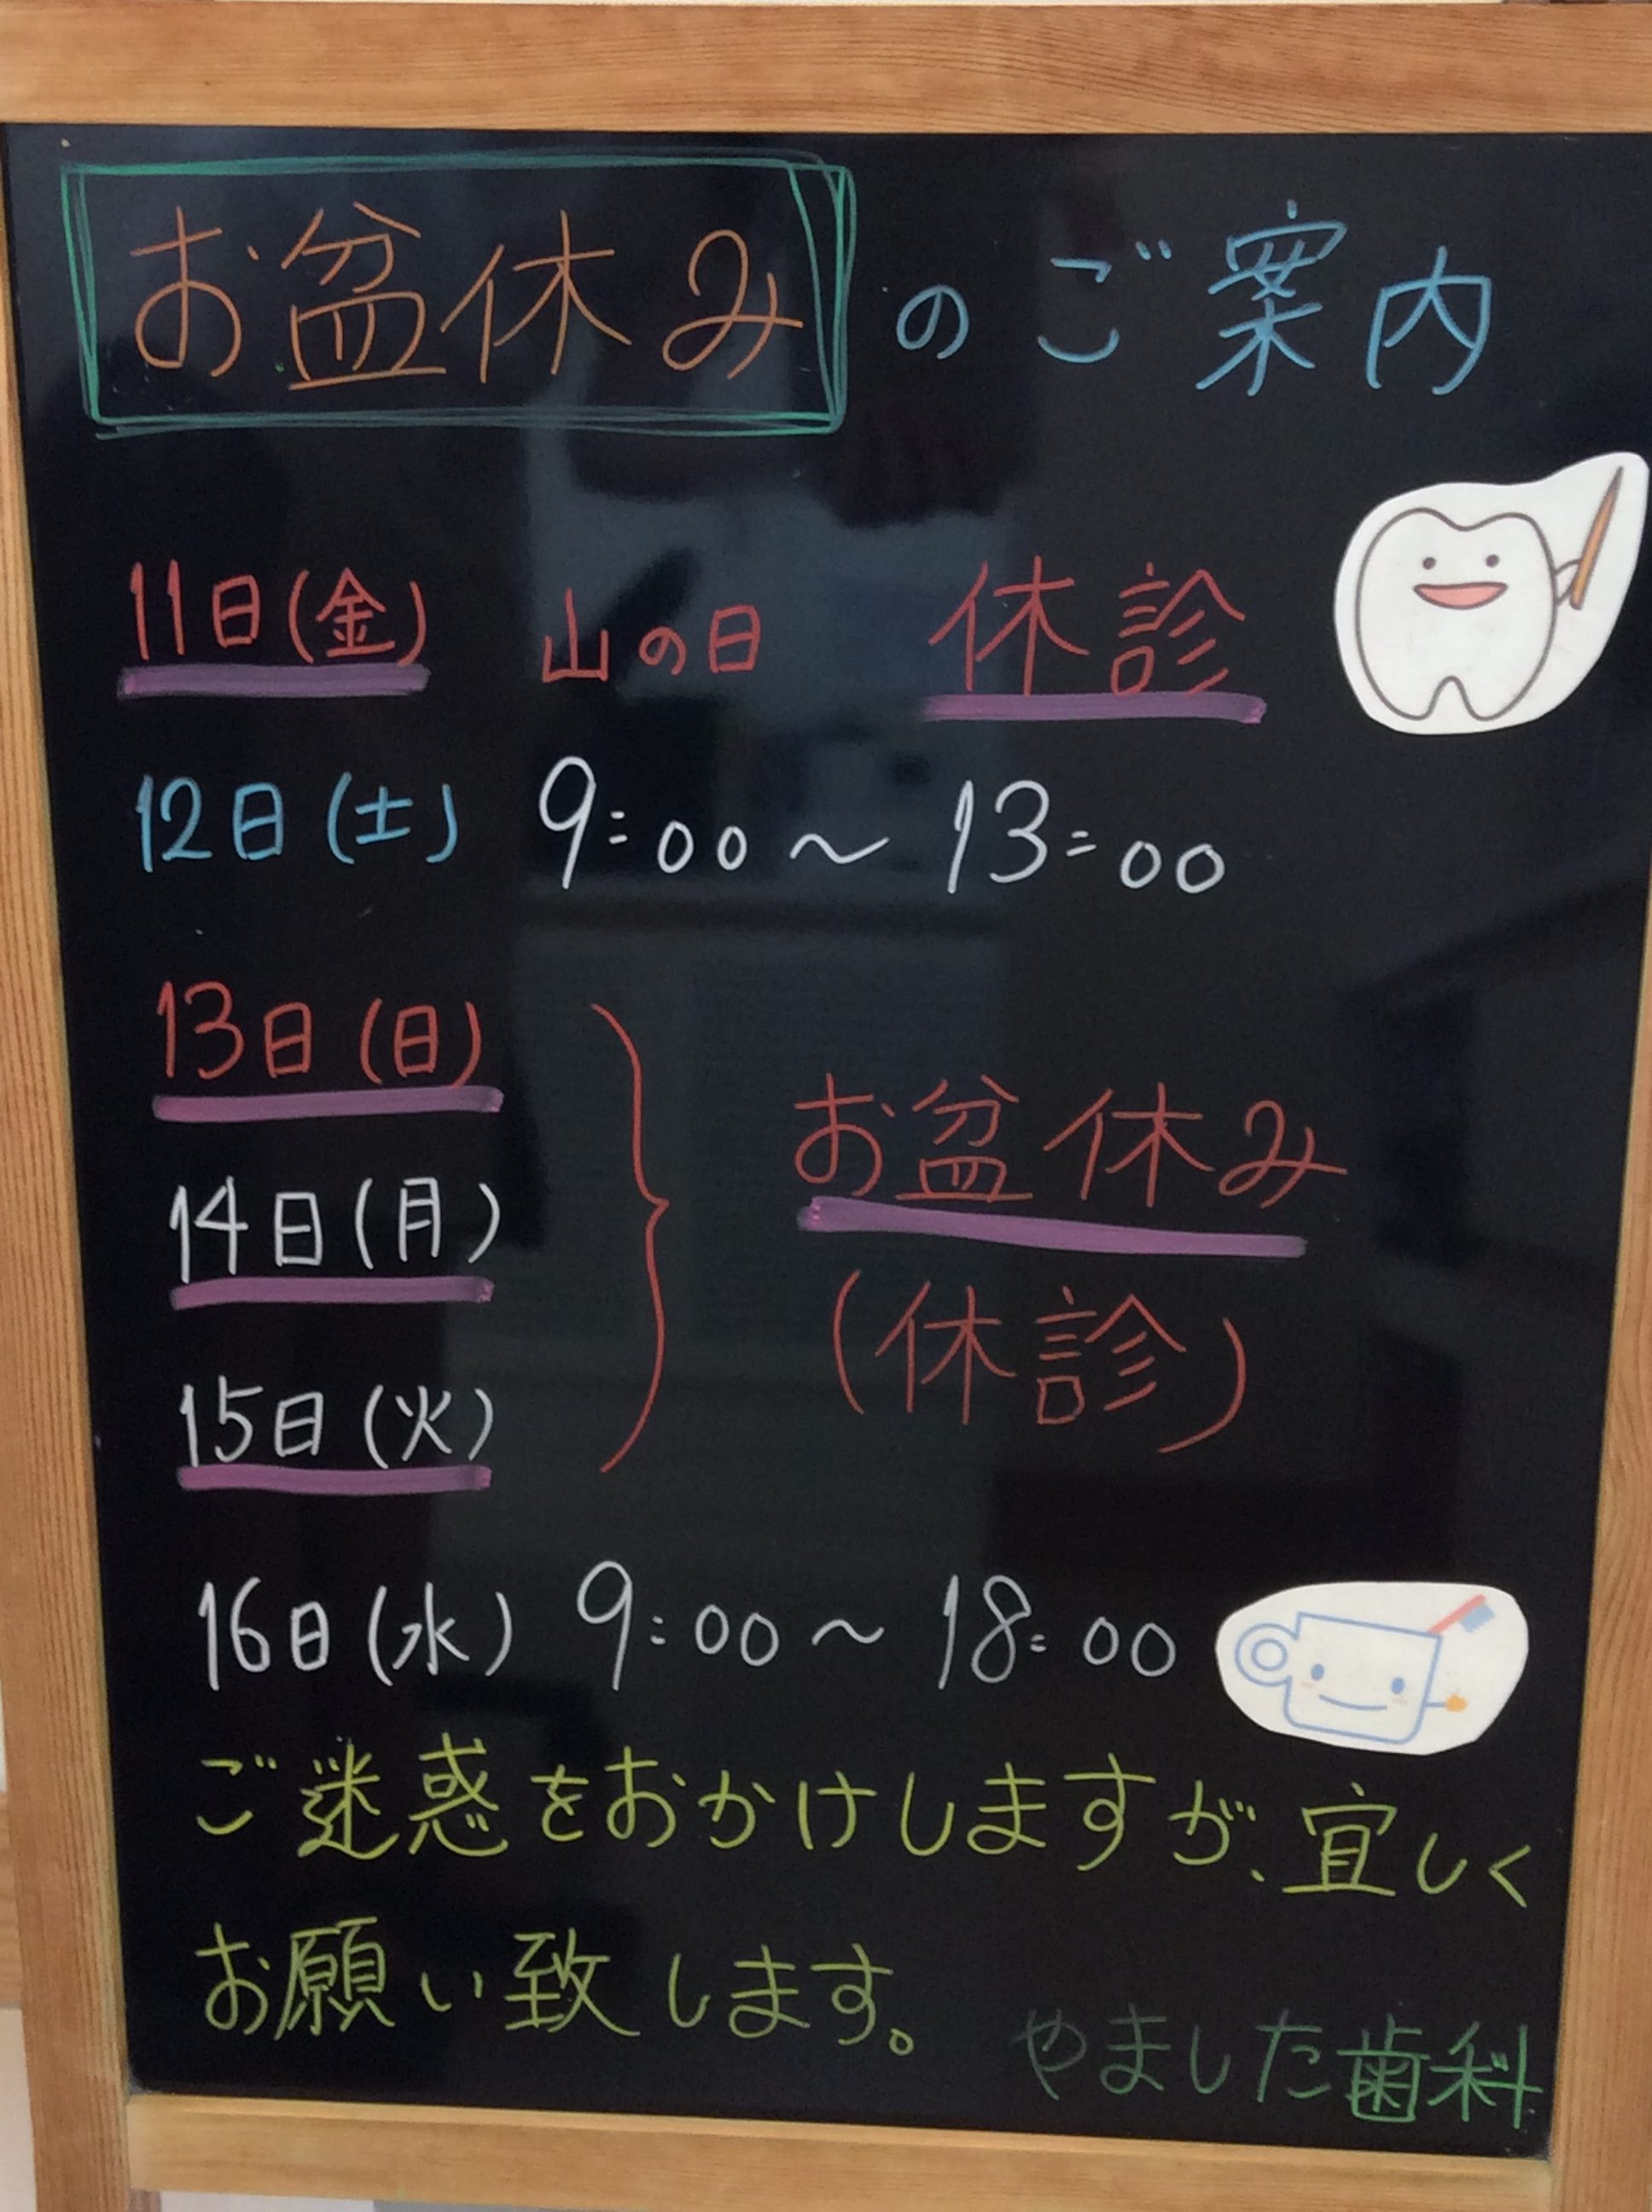 お盆休みのご案内
11日(金) 山の日 休診
12日(土) 9:00〜13:00
13日(日)
14日(月)
15日(火)
お盆休み
(休診)
16日(水) 9:00〜18:00
ご迷惑をおかけしますが、宜しく
お願い致します。
やました歯科